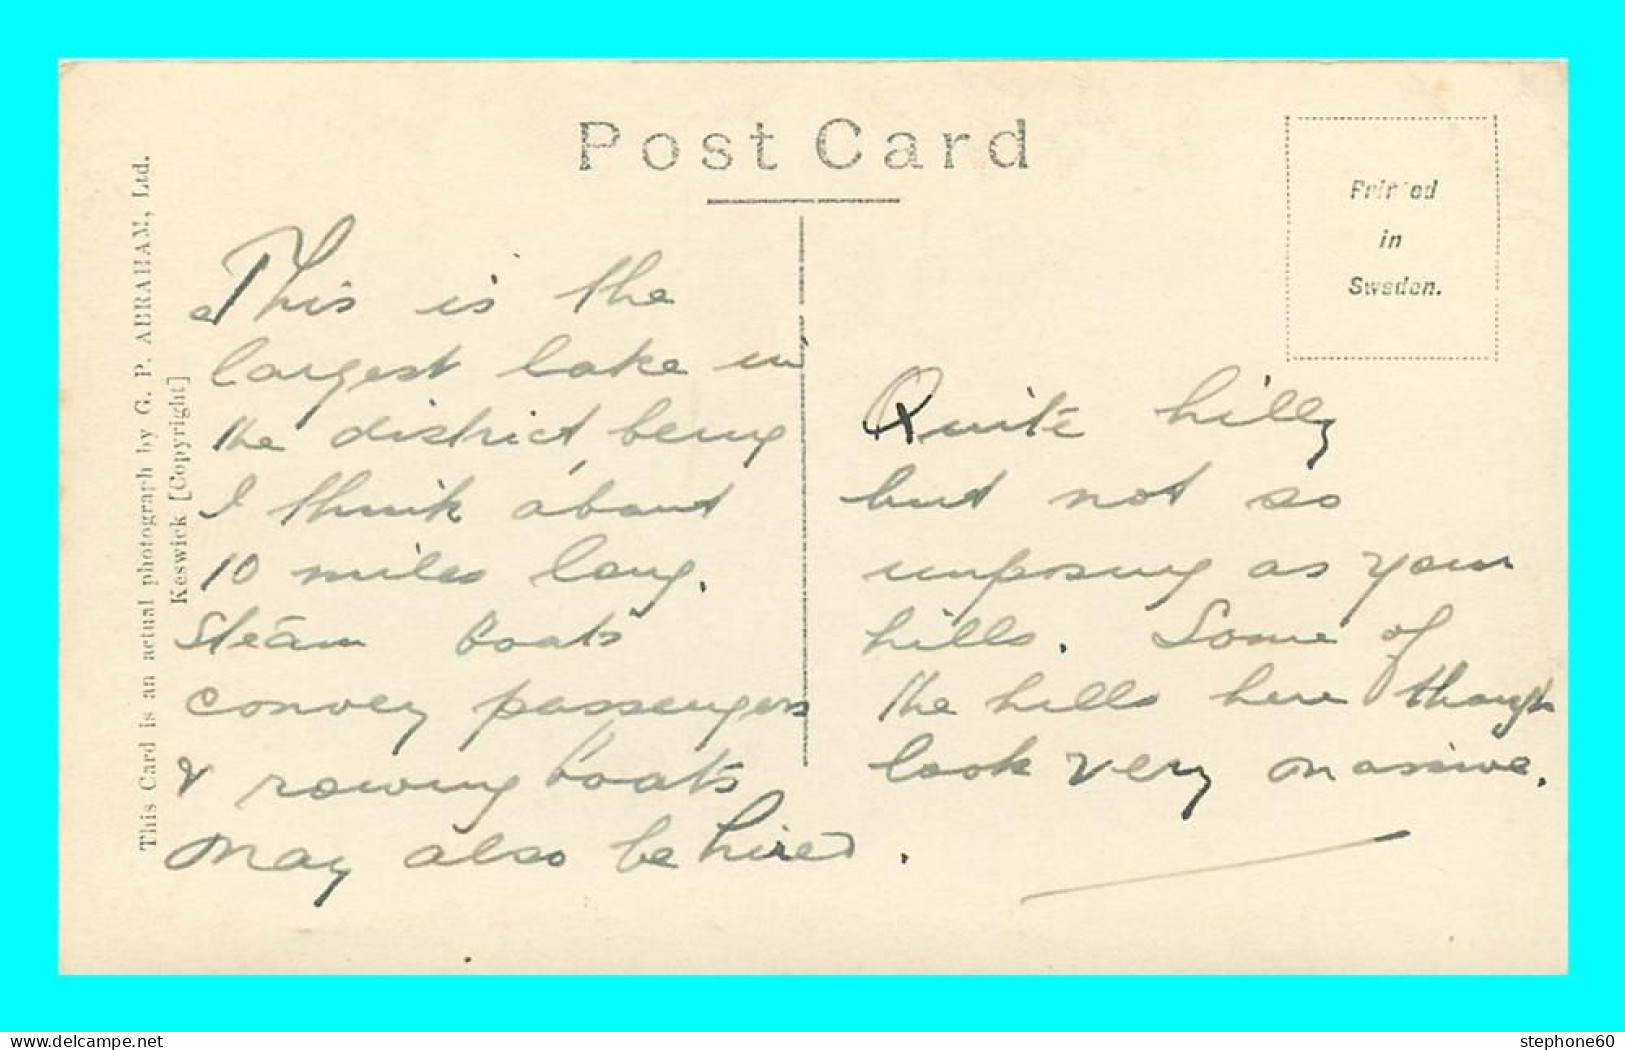 Post Card
Printed
in
Sweden.
This Card is an actual photograph by G. P. ABRAHAM, Ltd.
Keswick [Copyright]
This is the
largest lake in
the district, being
I think about
10 miles long.
Steam boats
convey passengers
& rowing boats
may also be hired.
Quite hilly
but not so
imposing as your
hills. Some of
the hills here though
look very massive.
www.delcampe.net
stephone60